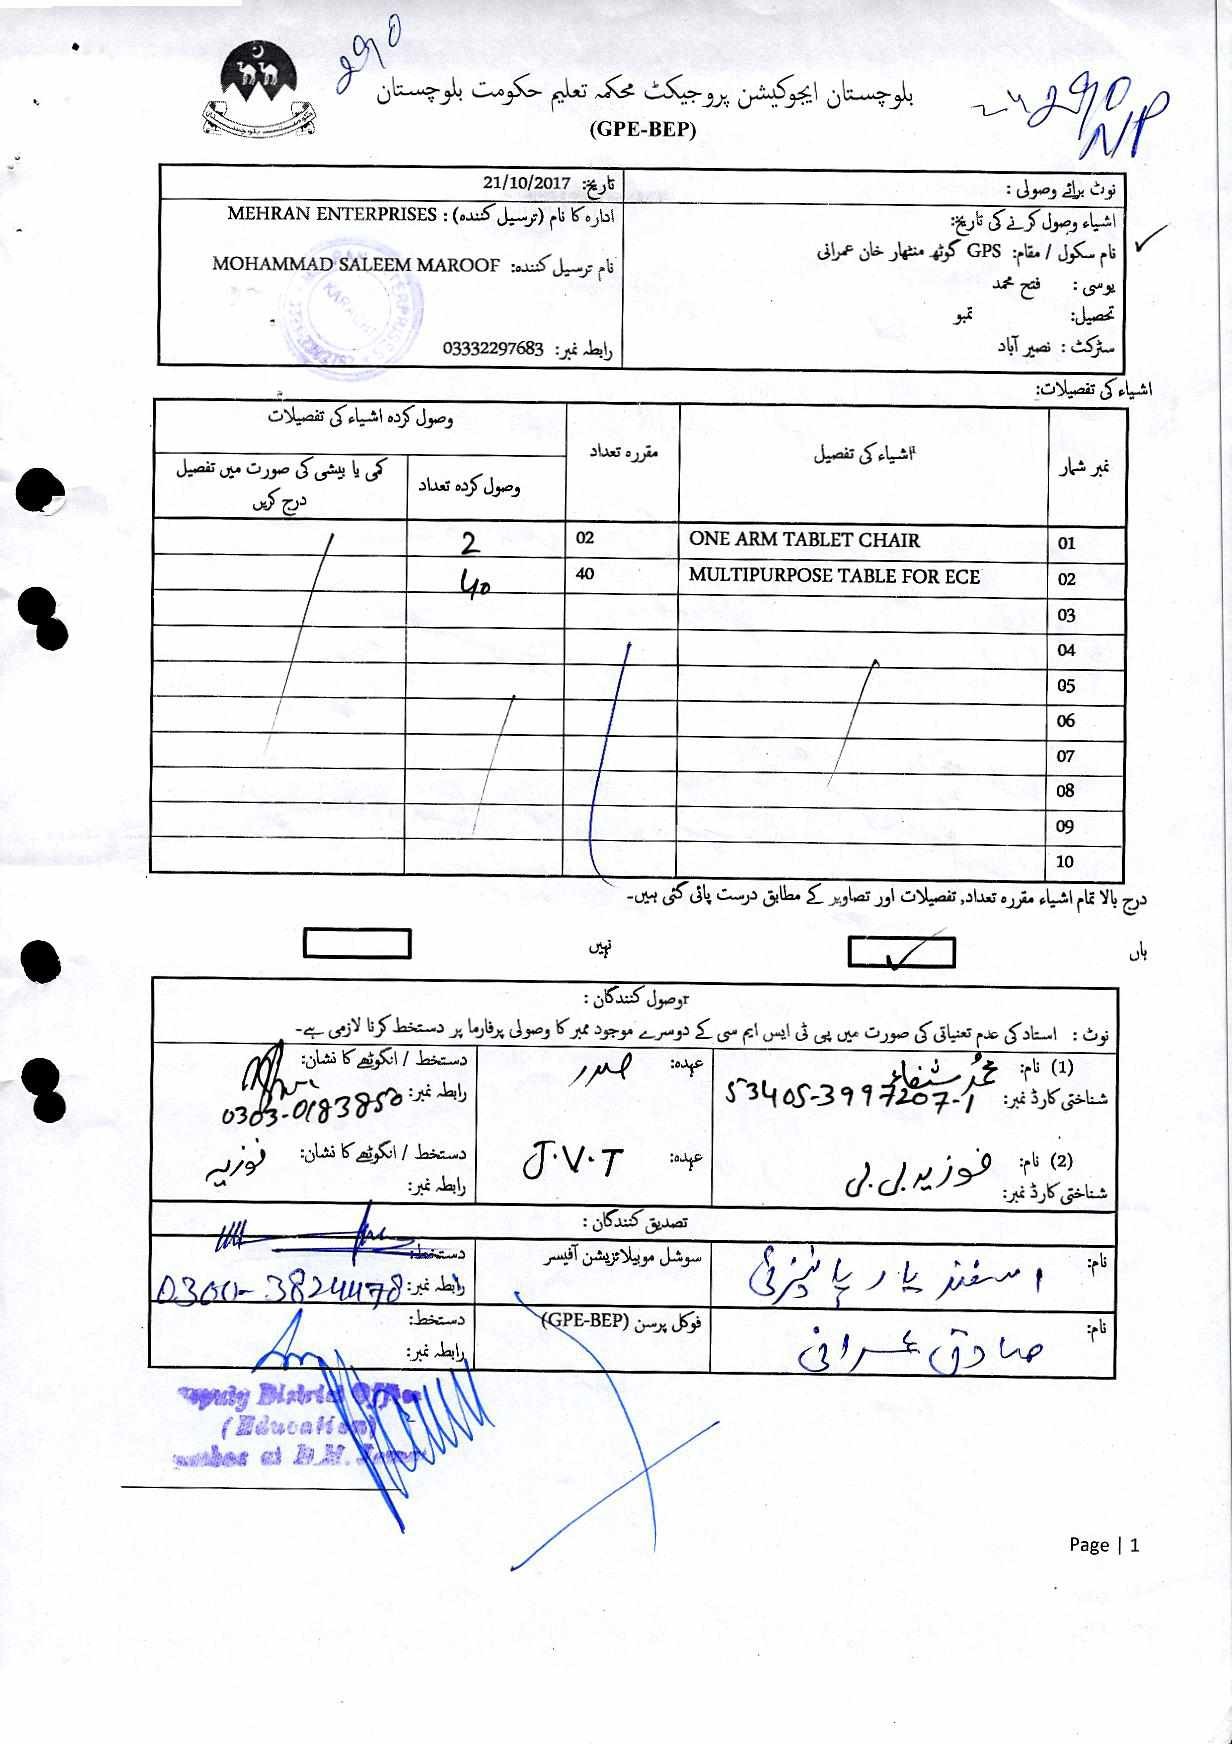 290
290
NP
بلوچستان ایجوکیشن پروجیکٹ محکمہ تعلیم حکومت بلوچستان
(GPE-BEP)
نوٹ برائے وصولی :
تاریخ: 21/10/2017
اشیاء وصول کرنے کی تاریخ:
ادارہ کا نام (ترسیل کنندہ) : MEHRAN ENTERPRISES
نام سکول / مقام: GPS گوٹھ منٹھار خان عمرانی
نام ترسیل کنندہ: MOHAMMAD SALEEM MAROOF
یوسی : فتح محمد
تحصیل: تمبو
سٹرکٹ : نصیر آباد
رابطہ نمبر: 03332297683
اشیاء کی تفصیلات:
نمبر شمار
اشیاء کی تفصیل
مقررہ تعداد
وصول کردہ اشیاء کی تفصیلات
وصول کردہ تعداد
کمی یا بیشی کی صورت میں تفصیل
درج کریں
01 ONE ARM TABLET CHAIR 02 2
02 MULTIPURPOSE TABLE FOR ECE 40 40
03
04
05
06
07
08
09
10
درج بالا تمام اشیاء مقررہ تعداد, تفصیلات اور تصاویر کے مطابق درست پائی گئی ہیں۔
ہاں
نہیں
وصول کنندگان :
نوٹ : استاد کی عدم تعیناتی کی صورت میں پی ٹی ایس ایم سی کے دوسرے موجود ممبر کا وصولی پرفارما پر دستخط کرنا لازمی ہے۔
(1) نام: محمد شفاء عہدہ: صدر دستخط / انگوٹھے کا نشان:
شناختی کارڈ نمبر: 53405-3997207-1 رابطہ نمبر: 0303-0183850
(2) نام: فوزیہ بی بی عہدہ: J.V.T دستخط / انگوٹھے کا نشان: فوزیہ
شناختی کارڈ نمبر: رابطہ نمبر:
تصدیق کنندگان :
نام: اسفند یار سوشل موبیلائزیشن آفیسر دستخط:
رابطہ نمبر: 0300-3824478
نام: صادق عمرانی فوکل پرسن (GPE-BEP) دستخط:
رابطہ نمبر:
Deputy District Officer
(Education)
Page | 1